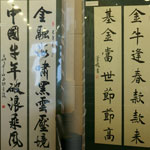 金牛逢春款款來
基金當世節節高
金融海嘯黑雲壓境
中國牛年破浪乘風